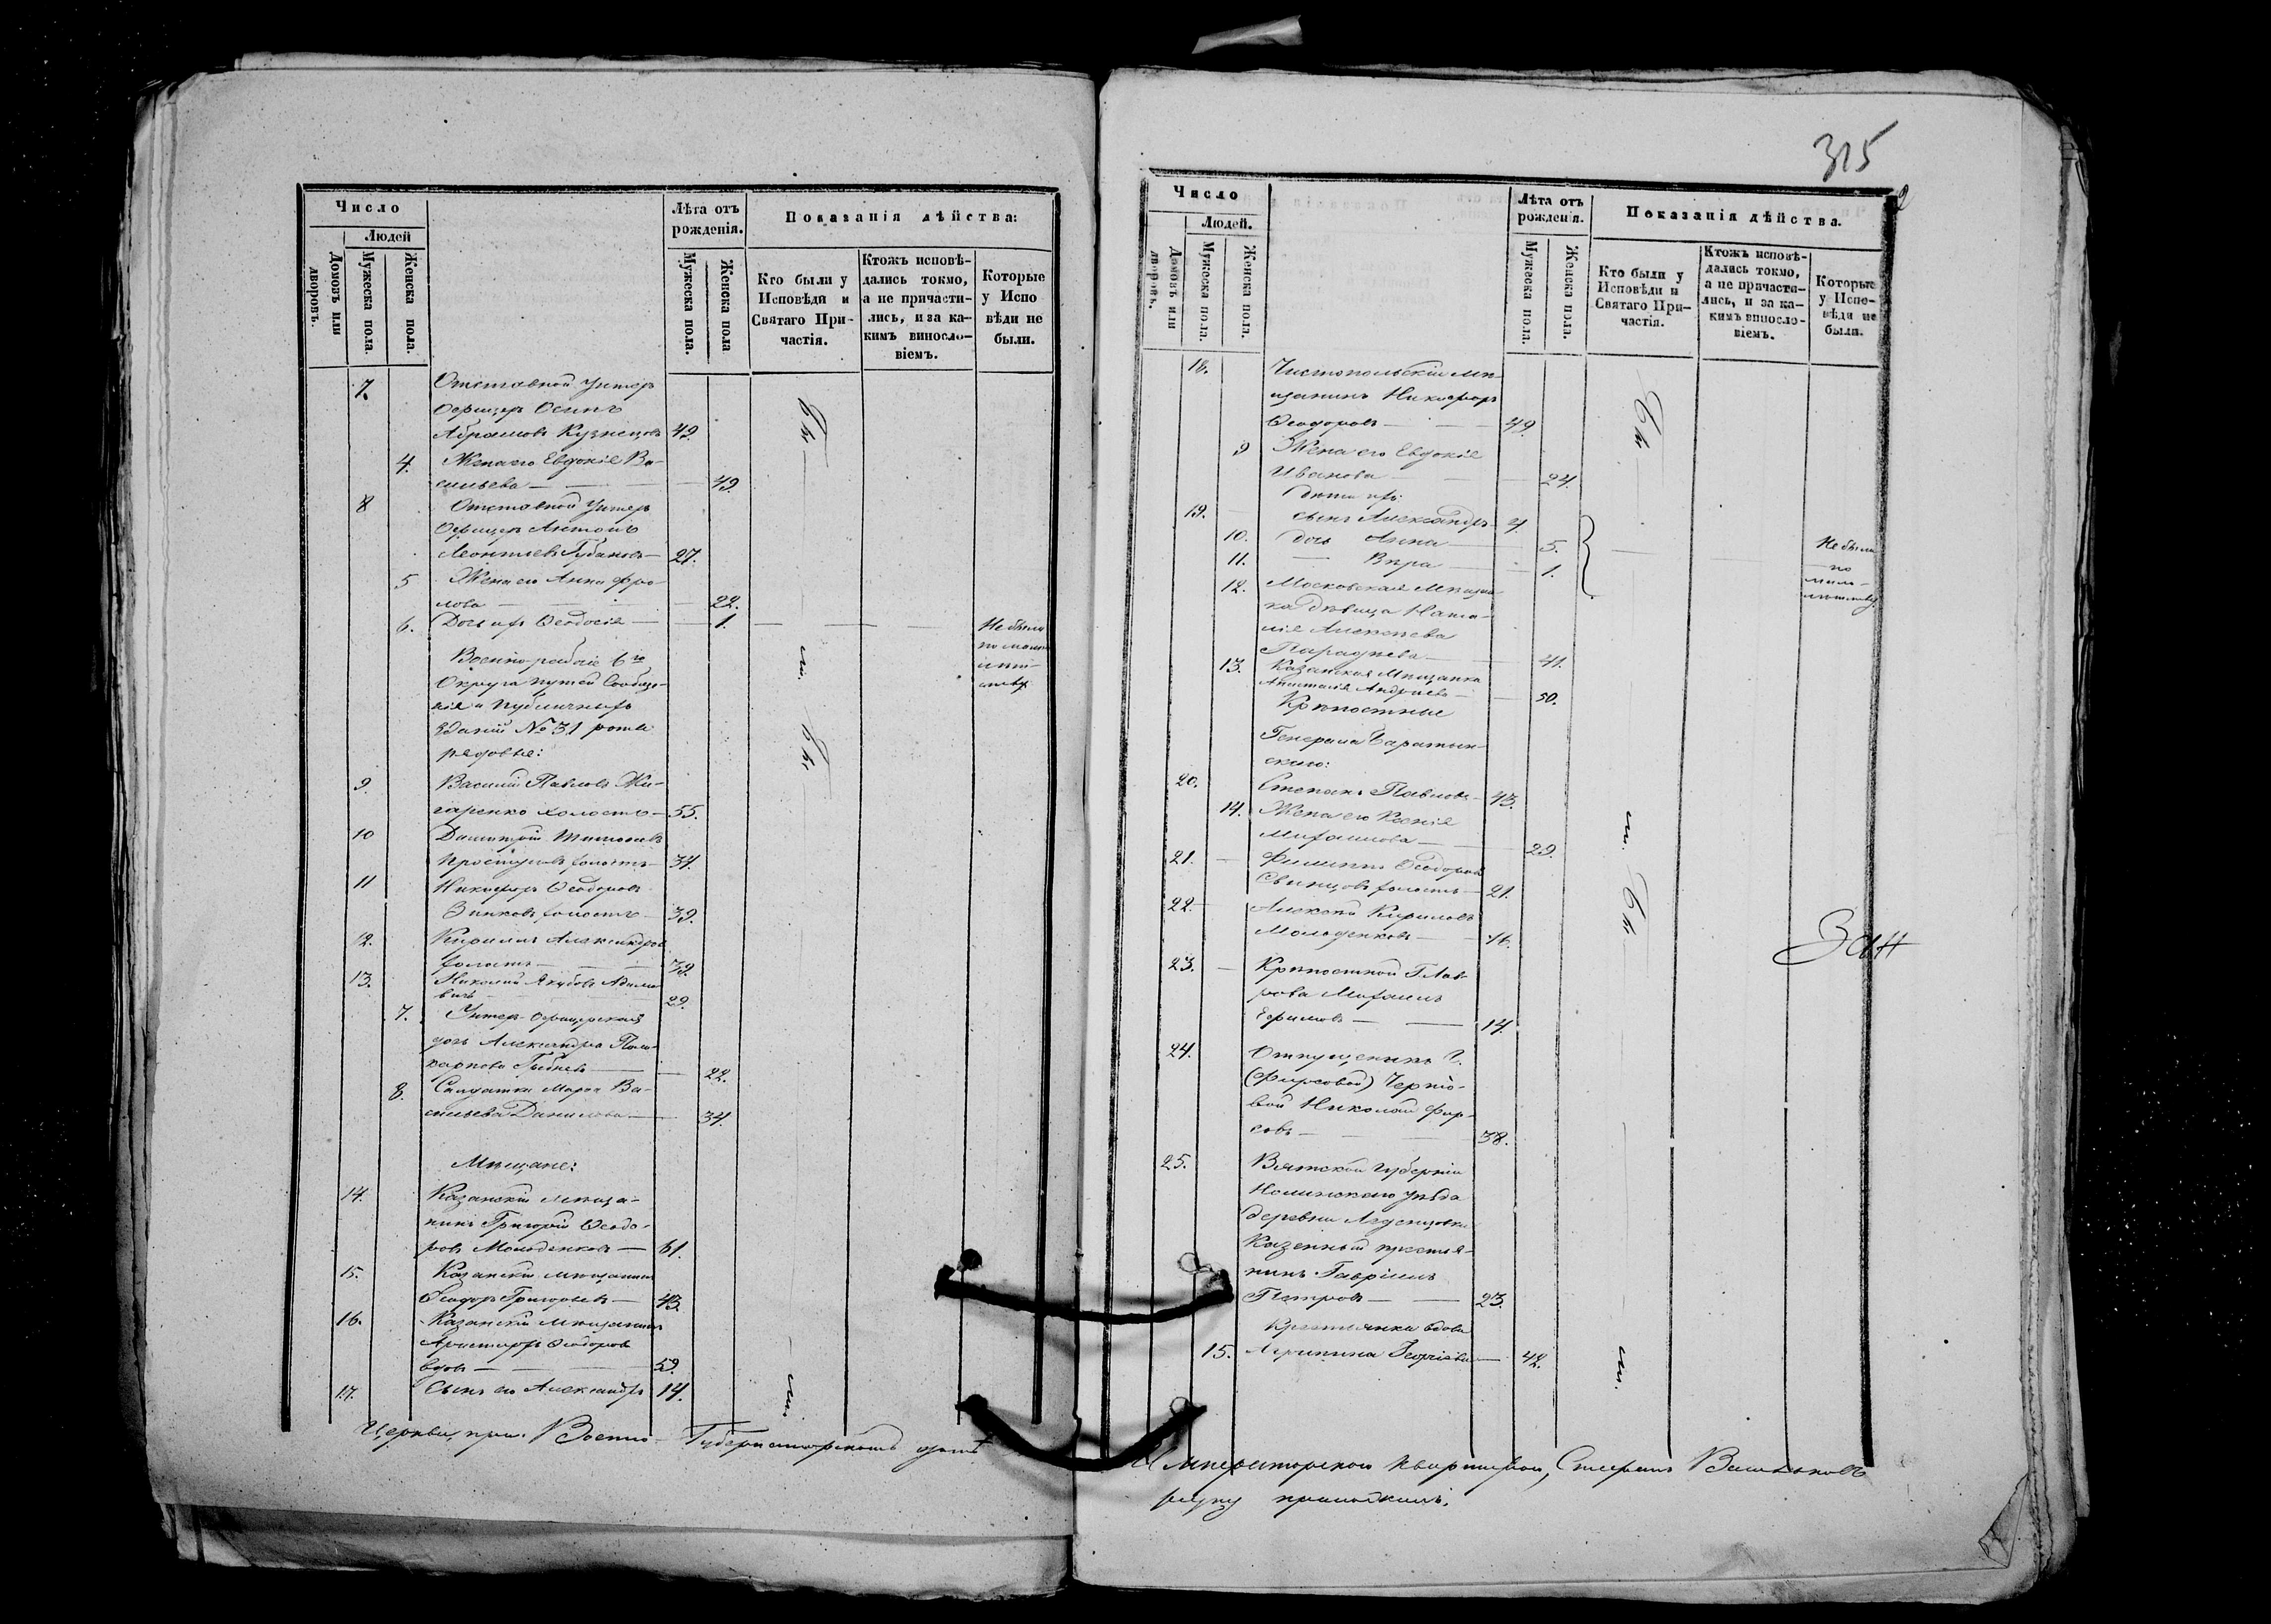 Число
Людей
Домовъ или дворовъ.
Мужеска пола.
Женска пола.
Лѣта отъ рожденія.
Мужеска пола.
Женска пола
Показанія дѣйства:
Кто были у Исповѣди и Святаго Причастія.
Ктожъ исповѣдались токмо, а не причастились, и за какимъ винословіемъ.
Которые у Исповѣди не были.
7. Отставной Унтеръ
Офицеръ Осипъ
Абрамовъ Кузнецовъ 49.
4. Жена его Евдокія Ва-
сильева — 49.
8 Отставной Унтеръ
Офицеръ Антонъ
Леонтьевъ Губановъ — 27.
5 Жена его Анна Фро-
лова — 22.
6. Дочь ихъ Феодосія — 1.
Не были
по мало
лѣт-
ству
Военно-рабочіе 6го
Округа путей Сообще-
нія и публичныхъ
зданій № 31 роты
рядовые:
9. Василій Павловъ Жи-
гаренко холостъ — 55.
10 Димитрій
холостъ — 34.
11 Никифоръ Феодоровъ
Зинковъ холостъ — 39.
12. Кириллъ Александровъ
холостъ — 39.
13. Николай Якубовъ
29.
7. Унтеръ-офицерская
дочь Александра Поли-
карпова — 22.
8. Солдатка Марья Ва-
сильева Данилова — 34.
Мѣщане:
14. Казанскій мѣща-
нинъ Григорій Феодо-
ровъ Молоденковъ — 61.
15. Казанскій мѣщанинъ
Феодоръ Григорьевъ — 43.
16. Казанскій мѣщанинъ
Феодоровъ
вдовъ — 59.
17. Сынъ его Александръ 14.
Церкви, при Военно-Губернаторскомъ домѣ
315
2
Число
Людей.
Домовъ или дворовъ.
Мужеска пола.
Женска пола.
Лѣта отъ рожденія.
Мужеска пола.
Женска пола.
Показанія дѣйства.
Кто были у Исповѣди и Святаго Причастія.
Ктожъ исповѣдались токмо, а не причастились, и за какимъ винословіемъ.
Которые у Исповѣди не были.
18. Чистопольскій мѣ-
щанинъ Никифоръ
Феодоровъ — 49.
9 Жена его Евдокія
Иванова — 24.
Дѣти ихъ:
19. сынъ Александръ 4.
10. дочь Анна 5.
11. — Вѣра — 1.
Не были
по
мало-
лѣтству
12. Московская Мѣщан-
ка дѣвица Ната-
лія Алексѣева
41.
13. Казанская Мѣщанка
Анастасія Андреева — 50.
Крѣпостные
Генерала Баратын-
скаго:
20. Степанъ Павловъ — 43.
14. Жена его Ксенія
Михайлова — 29.
21. — Филиппъ Феодоровъ
Свинцовъ холостъ — 21.
22. Алексѣй Кириловъ
Молоденковъ — 16.
23. — Крѣпостной Г. Лав-
рова Михаилъ
Ефимовъ — 14.
24. Отпущеникъ Г.
(Фирсовой)
Николай Фир-
совъ — 38.
25. Вятской губерніи
Нолинскаго уѣзда
деревни
Казенный крестья-
нинъ Гавріилъ
Петровъ — 23.
Крестьянка вдова
15. Агрипина Георгіева — 42.
Зан
Императорской квартирой, Стефанъ
руку приложилъ.